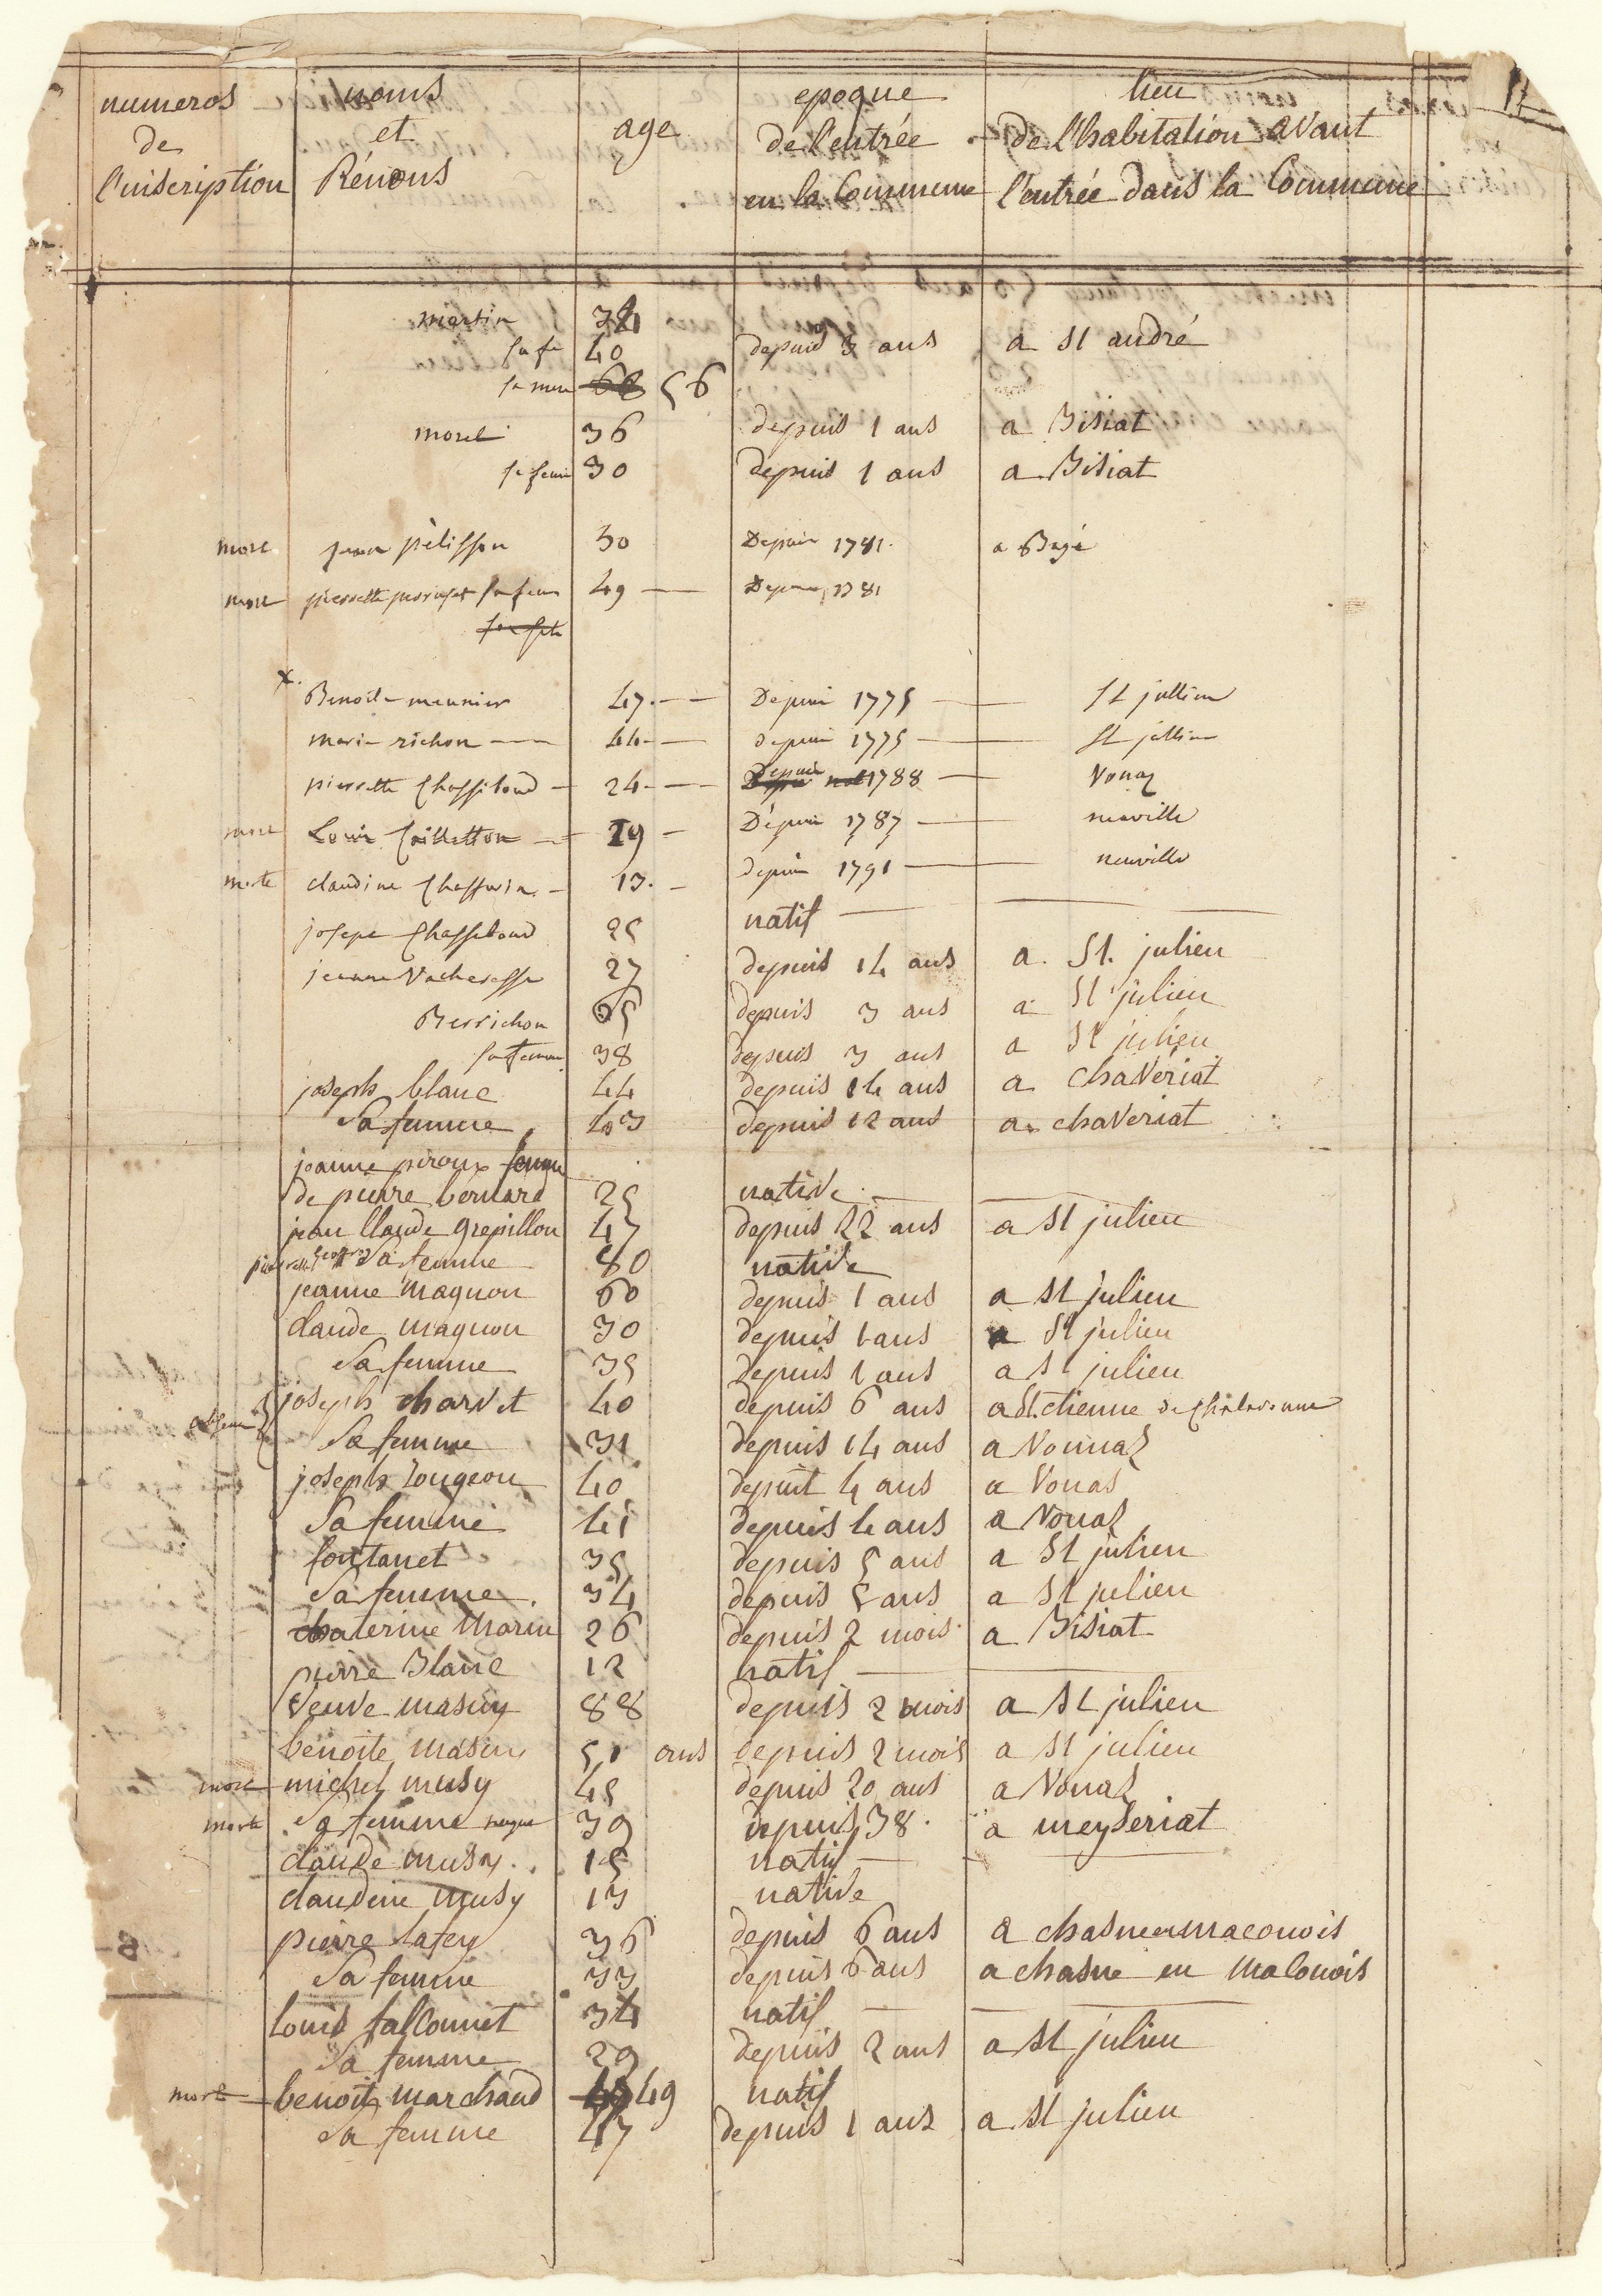 numeros de l'inscription | noms et Rénons | age | epoque de l'entrée en la Commune | lieu de l'habitation avant l'entrée dans la Commune
martin 34
sa fe 40 depuis 3 ans a St andré
sa mere 68 56
morel 36 depuis 1 ans a Bisiat
sa fem 30 depuis 1 ans a Bisiat
mort jean pélisson 50 Depuis 1781 a Bagé
mort pierrette sa fem 49 Depuis 1781
x. Benoit meunier 47 Depuis 1775 St jullien
marie richon 44 depuis 1775 St jullien
pierrette Chassiboud 24 Depuis 1788 Vonaz
mort Louis Cailletton 29 Dépuis 1787 neuville
morte claudine 13 depuis 1791 neuville
josepe Chassiboud 25 natif
jeanne Vacheresse 27 depuis 14 ans a St. julien
Berrichon 65 depuis 3 ans a St julien
sa femme 38 depuis 3 ans a St julien
joseph blanc 44 depuis 14 ans a chaveriat
Sa femme 43 depuis 12 ans a chaveriat
jeanne peroux femme
de pierre bernard 25 native
jean Claude grepillon 47 depuis 22 ans a St julien
Sa femme 80 native
jeanne magnon 60 depuis 1 ans a St julien
claude magnon 30 depuis 1 ans a St julien
Sa femme 35 depuis 1 ans a St julien
joseph charvet 40 depuis 6 ans a St. etienne de Chalaronne
absent Sa femme 31 depuis 14 ans a Vonnaz
joseph Rougeon 40 depuit 4 ans a Vonas
Sa femme 41 depuis 4 ans a Vonaz
fontanet 35 depuis 5 ans a St julien
Sa femme 34 depuis 5 ans a St julien
chaterine Marin 26 depuis 2 mois a Bisiat
pierre Blanc 12 natif
Veuve masuy 88 depuis 2 mois a St julien
benoite masuy 51 ans depuis 2 mois a St julien
mort michel musy 45 depuis 20 ans a Vonaz
morte Sa femme 39 depuis 38 a meyseriat
claude musy 15 natif
claudine musy 13 native
pierre lafay 36 depuis 6 ans a chasne en maconois
Sa femme 33 depuis 6 ans a chasne en maconois
Louis falconnet 34 natif
Sa femme 29 depuis 2 ans a St julien
mort benoit marchand 49 natif
Sa femme 47 depuis 1 ans a St julien